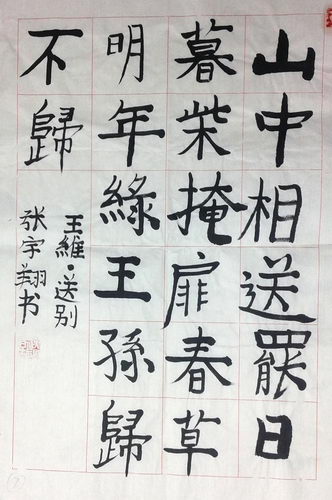 山中相送罷日
暮柴掩扉春草
明年綠王孫歸
不歸
王維·送别
张宇翔书